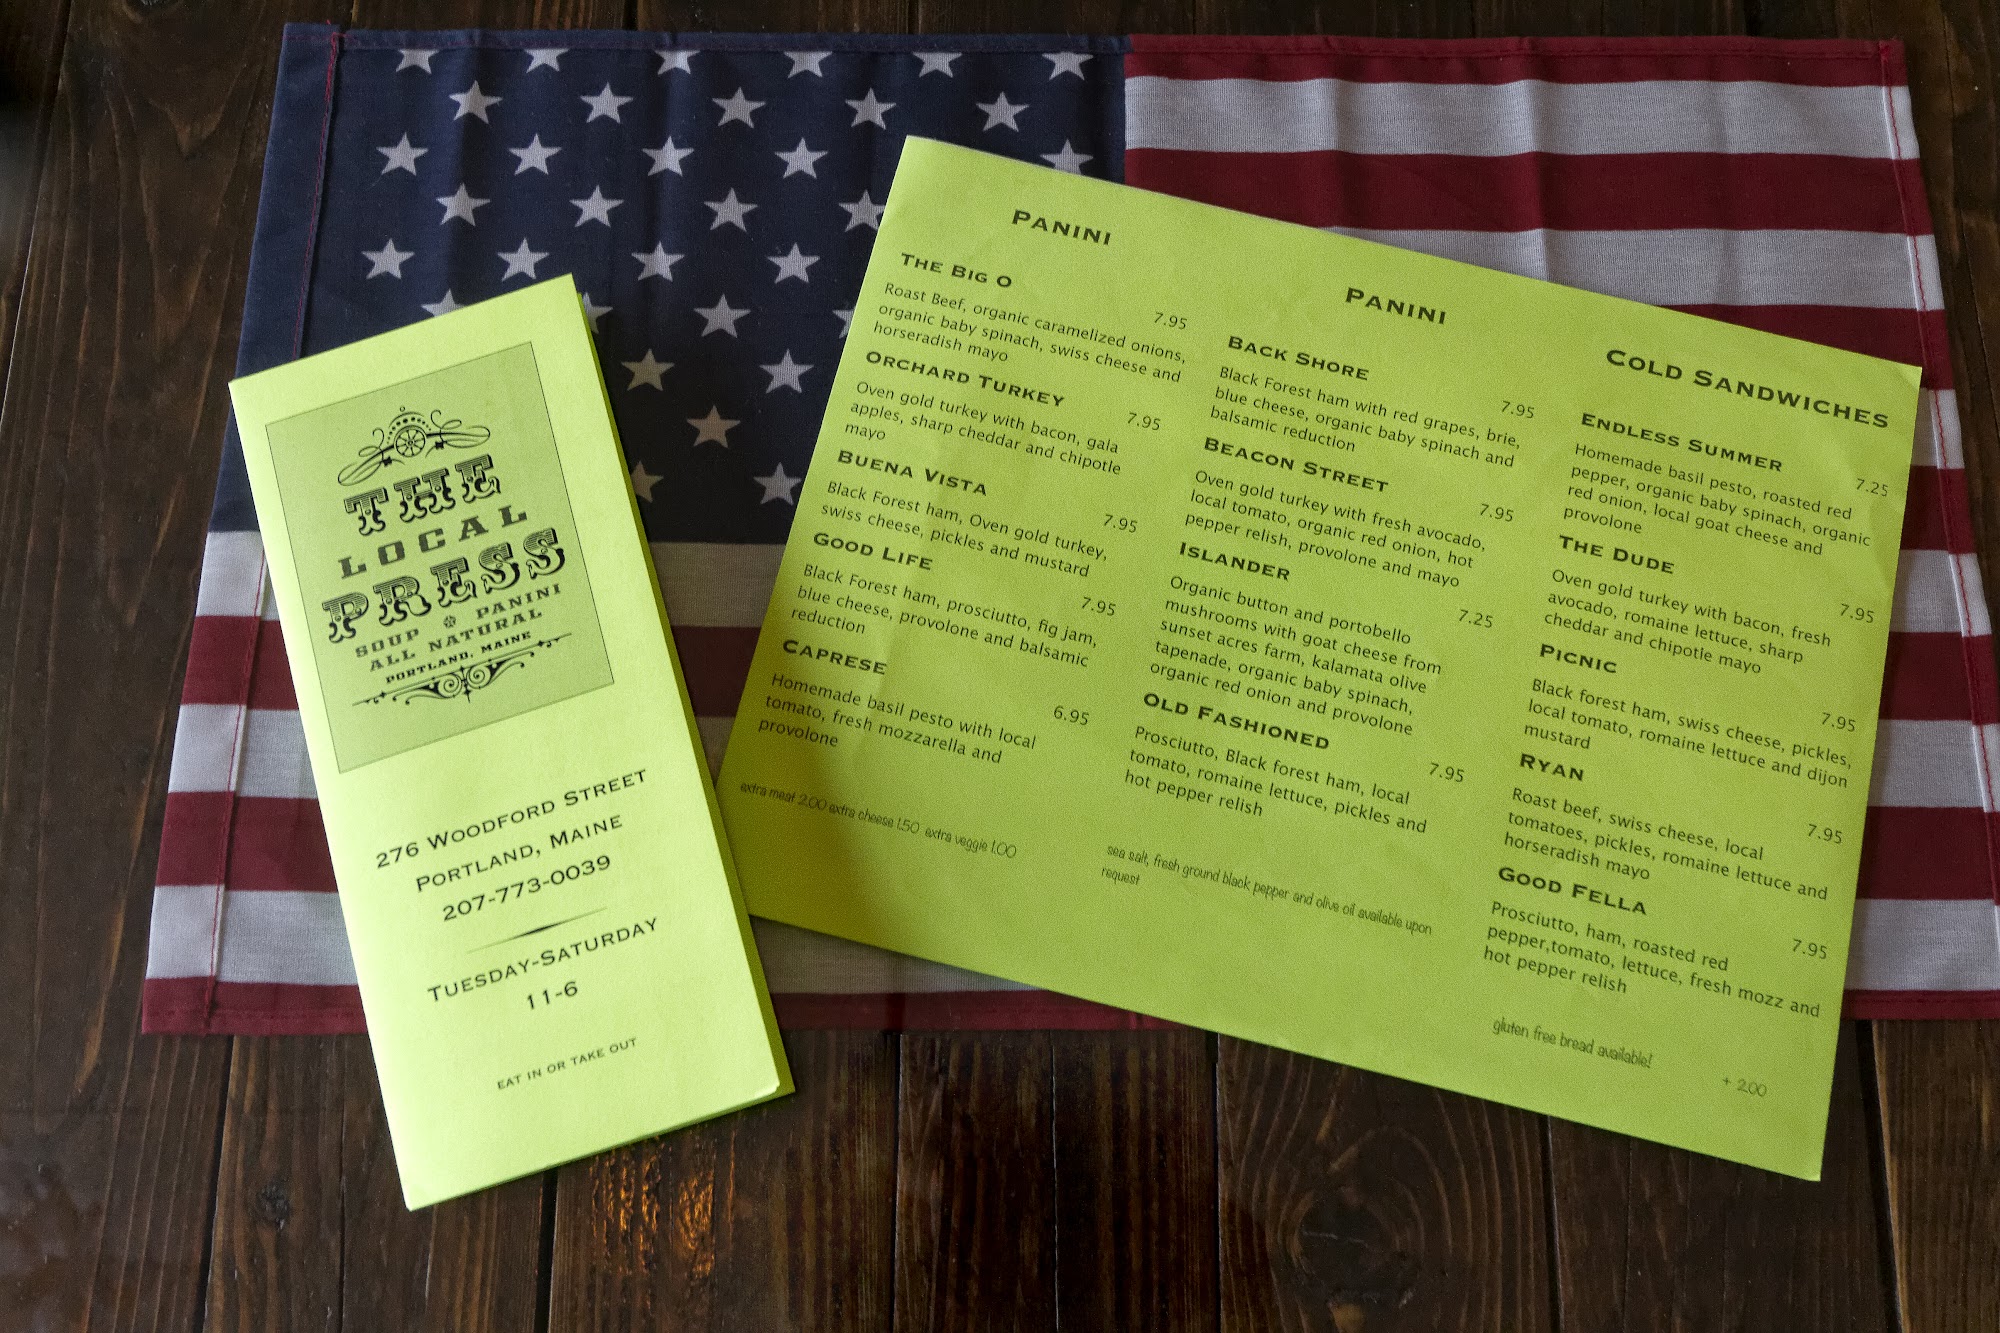 THE
LOCAL
PRESS
SOUP PANINI
ALL NATURAL
PORTLAND, MAINE
276 WOODFORD STREET
PORTLAND, MAINE
207-773-0039
TUESDAY-SATURDAY
11-6
EAT IN OR TAKE OUT
PANINI
THE BIG O
7.95
Roast Beef, organic caramelized onions,
organic baby spinach, swiss cheese and
horseradish mayo
ORCHARD TURKEY
7.95
Oven gold turkey with bacon, gala
apples, sharp cheddar and chipotle
mayo
BUENA VISTA
7.95
Black Forest ham, Oven gold turkey,
swiss cheese, pickles and mustard
GOOD LIFE
7.95
Black Forest ham, prosciutto, fig jam,
blue cheese, provolone and balsamic
reduction
CAPRESE
6.95
Homemade basil pesto with local
tomato, fresh mozzarella and
provolone
extra meat 2.00 extra cheese 1.50 extra veggie 1.00
PANINI
BACK SHORE
7.95
Black Forest ham with red grapes, brie,
blue cheese, organic baby spinach and
balsamic reduction
BEACON STREET
7.95
Oven gold turkey with fresh avocado,
local tomato, organic red onion, hot
pepper relish, provolone and mayo
ISLANDER
7.25
Organic button and portobello
mushrooms with goat cheese from
sunset acres farm, kalamata olive
tapenade, organic baby spinach,
organic red onion and provolone
OLD FASHIONED
7.95
Prosciutto, Black forest ham, local
tomato, romaine lettuce, pickles and
hot pepper relish
sea salt, fresh ground black pepper and olive oil available upon
request
COLD SANDWICHES
ENDLESS SUMMER
7.25
Homemade basil pesto, roasted red
pepper, organic baby spinach, organic
red onion, local goat cheese and
provolone
THE DUDE
7.95
Oven gold turkey with bacon, fresh
avocado, romaine lettuce, sharp
cheddar and chipotle mayo
PICNIC
7.95
Black forest ham, swiss cheese, pickles,
local tomato, romaine lettuce and dijon
mustard
RYAN
7.95
Roast beef, swiss cheese, local
tomatoes, pickles, romaine lettuce and
horseradish mayo
GOOD FELLA
7.95
Prosciutto, ham, roasted red
pepper,tomato, lettuce, fresh mozz and
hot pepper relish
gluten free bread available!
+ 2.00